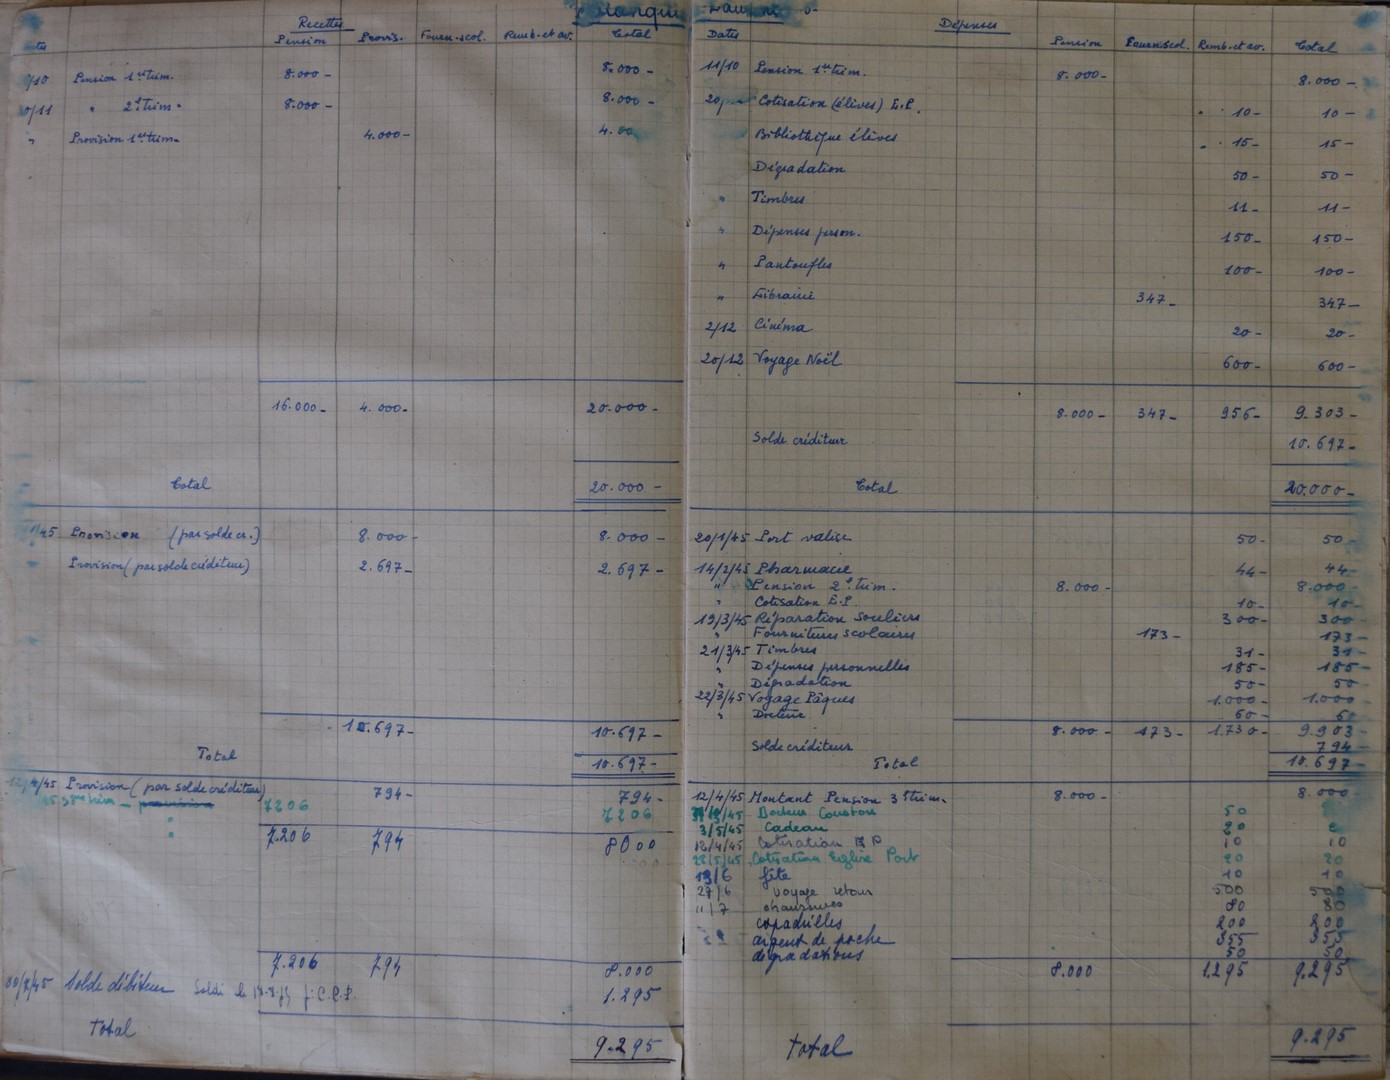 Recettes
Pension Provis. Fourn. scol. Remb. et av. Total
/10 Pension 1er trim. 8.000- 8.000-
/11 " 2e trim. 8.000- 8.000-
" Provision 1er trim. 4.000- 4.00
16.000- 4.000- 20.000-
Total 20.000-
/45 Provision (par solde cr.) 8.000- 8.000-
Provision (par solde créditeur) 2.697- 2.697-
10.697- 10.697-
Total 10.697-
12/4/45 Provision (par solde créditeur) 794- 794-
7206 7206
7.206 794 8000
7.206 794 8.000
Solde débiteur Soldé le C.C.P. 1.295
Total 9.295
Dépenses
Dates Pension Fourn. scol. Remb. et av. Total
11/10 Pension 1er trim. 8.000- 8.000-
20/ Cotisation (élèves) E.P. 10- 10-
Bibliothèque élèves 15- 15-
Dégradation 50- 50-
" Timbres 11- 11-
" Dépenses person. 150- 150-
" Pantoufles 100- 100-
" Librairie 347- 347-
2/12 Cinéma 20- 20-
20/12 Voyage Noël 600- 600-
8.000- 347- 956- 9.303-
Solde créditeur 10.697-
Total 20.000-
20/1/45 Port valise 50- 50-
14/2/45 Pharmacie 44- 44-
" Pension 2e trim. 8.000- 8.000-
" Cotisation E.P. 10- 10-
19/3/45 Réparation souliers 300- 300-
" Fournitures scolaires 173- 173-
21/3/45 Timbres 31- 31-
" Dépenses personnelles 185- 185-
" Dégradation 50- 50-
22/3/45 Voyage Pâques 1.000- 1.000-
" Docteur 60- 60
8.000- 173- 1.730- 9.903-
Solde créditeur 794-
Total 10.697-
12/4/45 Montant Pension 3e trim. 8.000- 8.000-
/45 Docteur 50
3/5/45 Cadeau 20
12/4/45 Cotisation E P 10 10
/5/45 Cotisation Eglise Port 20 20
/6 fête 10 10
27/6 voyage retour 500 500
11/7 chaussures 80 80
espadrilles 200 200
argent de poche 355 355
dégradations 50 50
8.000 1.295 9.295
Total 9.295